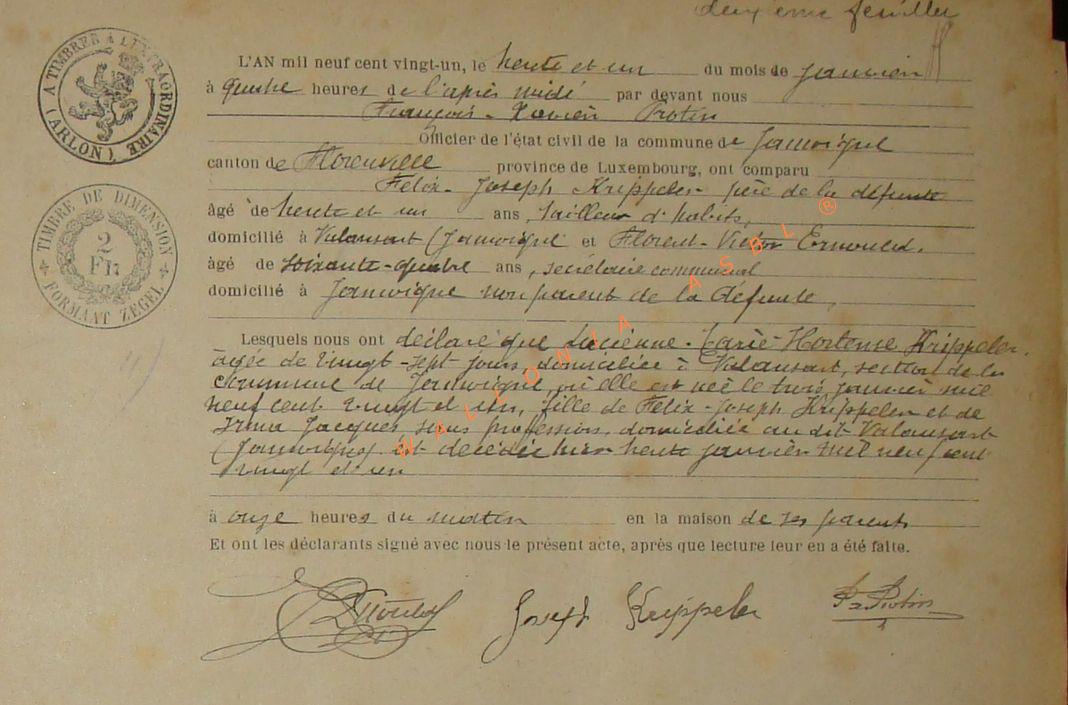 deuxième feuillet
A TIMBRER A L'EXTRAORDINAIRE
(ARLON)
TIMBRE DE DIMENSION
2
FR
FORMAAT ZEGEL
L'AN mil neuf cent vingt-un, le trente et un du mois de janvier
à quatre heures de l'après midi par devant nous
François-Xavier Protin
Officier de l'état civil de la commune de Jamoigne
canton de Florenville province de Luxembourg, ont comparu
Félix-Joseph Krippeler père de la défunte
âgé de trente et un ans, tailleur d'habits,
domicilié à Valansart (Jamoigne et Florent-Victor
âgé de soixante-quatre ans, secrétaire communal
domicilié à Jamoigne non parent de la défunte,
Lesquels nous ont déclaré que Lucienne-Marie-Hortense Krippeler,
âgée de vingt-sept jours, domiciliée à Valansart, section de la
commune de Jamoigne, où elle est née le trois janvier mil
neuf cent vingt et un, fille de Félix-Joseph Krippeler et de
Irma Jacques sans profession, domiciliée au dit Valansart
(Jamoigne) est décédée hier trente janvier mil neuf cent
vingt et un
à onze heures du matin en la maison de ses parents
Et ont les déclarants signé avec nous le présent acte, après que lecture leur en a été faite.
Joseph Krippeler
Protin
WALLONIA ASBL ®